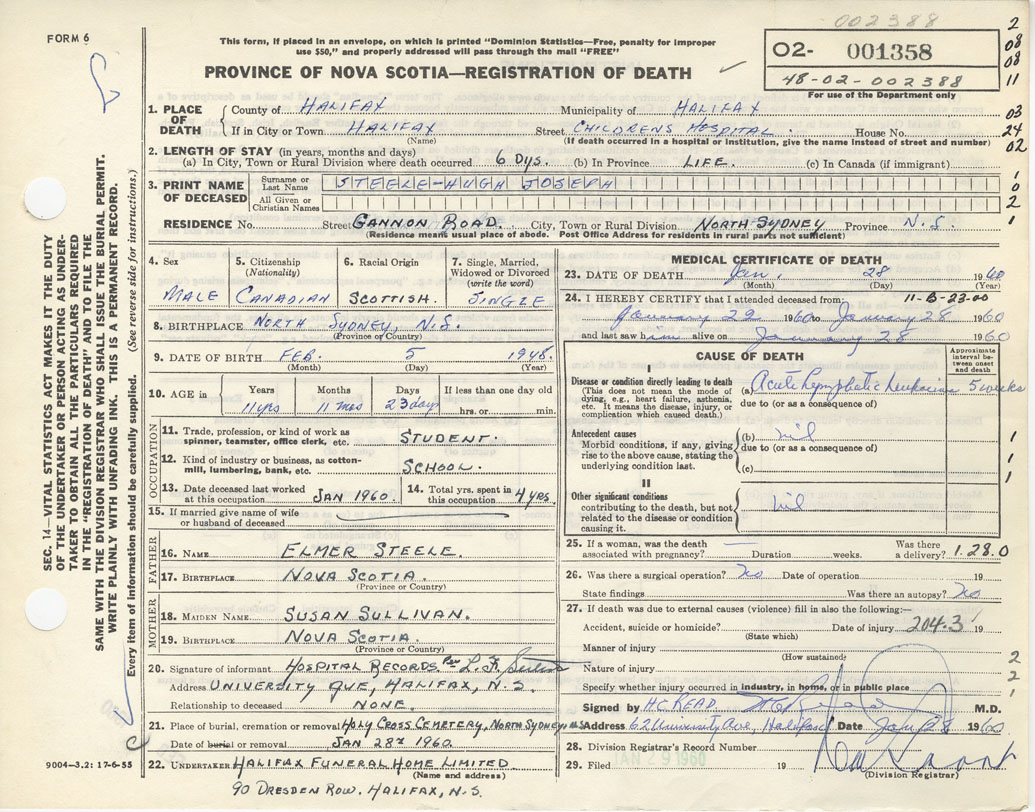 002388
FORM 6
This form, if placed in an envelope, on which is printed "Dominion Statistics—Free, penalty for improper
use $50," and properly addressed will pass through the mail "FREE"
PROVINCE OF NOVA SCOTIA—REGISTRATION OF DEATH
O2- 001358
48-02-002388
For use of the Department only
2
08
08
11
03
24
02
1
0
2
1
1. PLACE OF DEATH
County of HALIFAX Municipality of HALIFAX
If in City or Town HALIFAX Street CHILDRENS HOSPITAL House No.
(Name) (If death occurred in a hospital or institution, give the name instead of street and number)
2. LENGTH OF STAY (in years, months and days)
(a) In City, Town or Rural Division where death occurred 6 DYS. (b) In Province LIFE. (c) In Canada (if immigrant)
3. PRINT NAME OF DECEASED
Surname or Last Name STEELE-HUGH JOSEPH
All Given or Christian Names
RESIDENCE No. Street GANNON ROAD. City, Town or Rural Division NORTH SYDNEY Province N.S.
(Residence means usual place of abode. Post Office Address for residents in rural parts not sufficient)
4. Sex 5. Citizenship (Nationality) 6. Racial Origin 7. Single, Married, Widowed or Divorced (write the word)
MALE CANADIAN SCOTTISH. SINGLE
8. BIRTHPLACE NORTH SYDNEY, N.S.
(Province or Country)
9. DATE OF BIRTH FEB. 5 1948.
(Month) (Day) (Year)
10. AGE in Years Months Days If less than one day old
11 yrs 11 mos 23 days hrs. or min.
OCCUPATION
11. Trade, profession, or kind of work as spinner, teamster, office clerk, etc. STUDENT.
12. Kind of industry or business, as cotton-mill, lumbering, bank, etc. SCHOOL.
13. Date deceased last worked at this occupation JAN 1960. 14. Total yrs. spent in this occupation 4 YRS.
15. If married give name of wife or husband of deceased
FATHER
16. NAME ELMER STEELE.
17. BIRTHPLACE NOVA SCOTIA.
(Province or Country)
MOTHER
18. MAIDEN NAME SUSAN SULLIVAN.
19. BIRTHPLACE NOVA SCOTIA.
(Province or Country)
20. Signature of informant HOSPITAL RECORDS. Per
Address UNIVERSITY AVE, HALIFAX, N.S.
Relationship to deceased NONE.
21. Place of burial, cremation or removal HOLY CROSS CEMETERY, NORTH SYDNEY, N.S.
Date of burial or removal JAN 28th 1960.
22. UNDERTAKER HALIFAX FUNERAL HOME LIMITED
(Name and address)
90 DRESDEN ROW. HALIFAX, N.S.
MEDICAL CERTIFICATE OF DEATH
23. DATE OF DEATH Jan. 28 1960
(Month) (Day) (Year)
24. I HEREBY CERTIFY that I attended deceased from:
January 22 1960 to January 28 1960
and last saw him alive on January 28 1960
CAUSE OF DEATH
Approximate interval between onset and death
I
Disease or condition directly leading to death (a) Acute Lymphatic Leukaemia 5 weeks
(This does not mean the mode of dying, e.g., heart failure, asthenia, etc. It means the disease, injury, or complication which caused death.)
due to (or as a consequence of)
Antecedent causes (b) nil
Morbid conditions, if any, giving rise to the above cause, stating the underlying condition last.
due to (or as a consequence of)
(c)
1
1
1
II
Other significant conditions contributing to the death, but not related to the disease or condition causing it.
nil
25. If a woman, was the death associated with pregnancy? Duration weeks. Was there a delivery? 1.28.0
26. Was there a surgical operation? No Date of operation 19
State findings Was there an autopsy? No
27. If death was due to external causes (violence) fill in also the following:—
Accident, suicide or homicide? Date of injury 204.3 19
(State which)
Manner of injury
(How sustained)
Nature of injury
Specify whether injury occurred in industry, in home, or in public place
2
2
1
Signed by H.C. READ. M.D.
Address 62 University Ave, Halifax Date Jan 28 1960
28. Division Registrar's Record Number
29. Filed JAN 29 1960 19
(Division Registrar)
SEC. 14—VITAL STATISTICS ACT MAKES IT THE DUTY
OF THE UNDERTAKER OR PERSON ACTING AS UNDER-
TAKER TO OBTAIN ALL THE PARTICULARS REQUIRED
IN THE "REGISTRATION OF DEATH" AND TO FILE THE
SAME WITH THE DIVISION REGISTRAR WHO SHALL ISSUE THE BURIAL PERMIT.
WRITE PLAINLY WITH UNFADING INK. THIS IS A PERMANENT RECORD.
Every item of information should be carefully supplied. (See reverse side for instructions.)
9004-3.2: 17-6-55